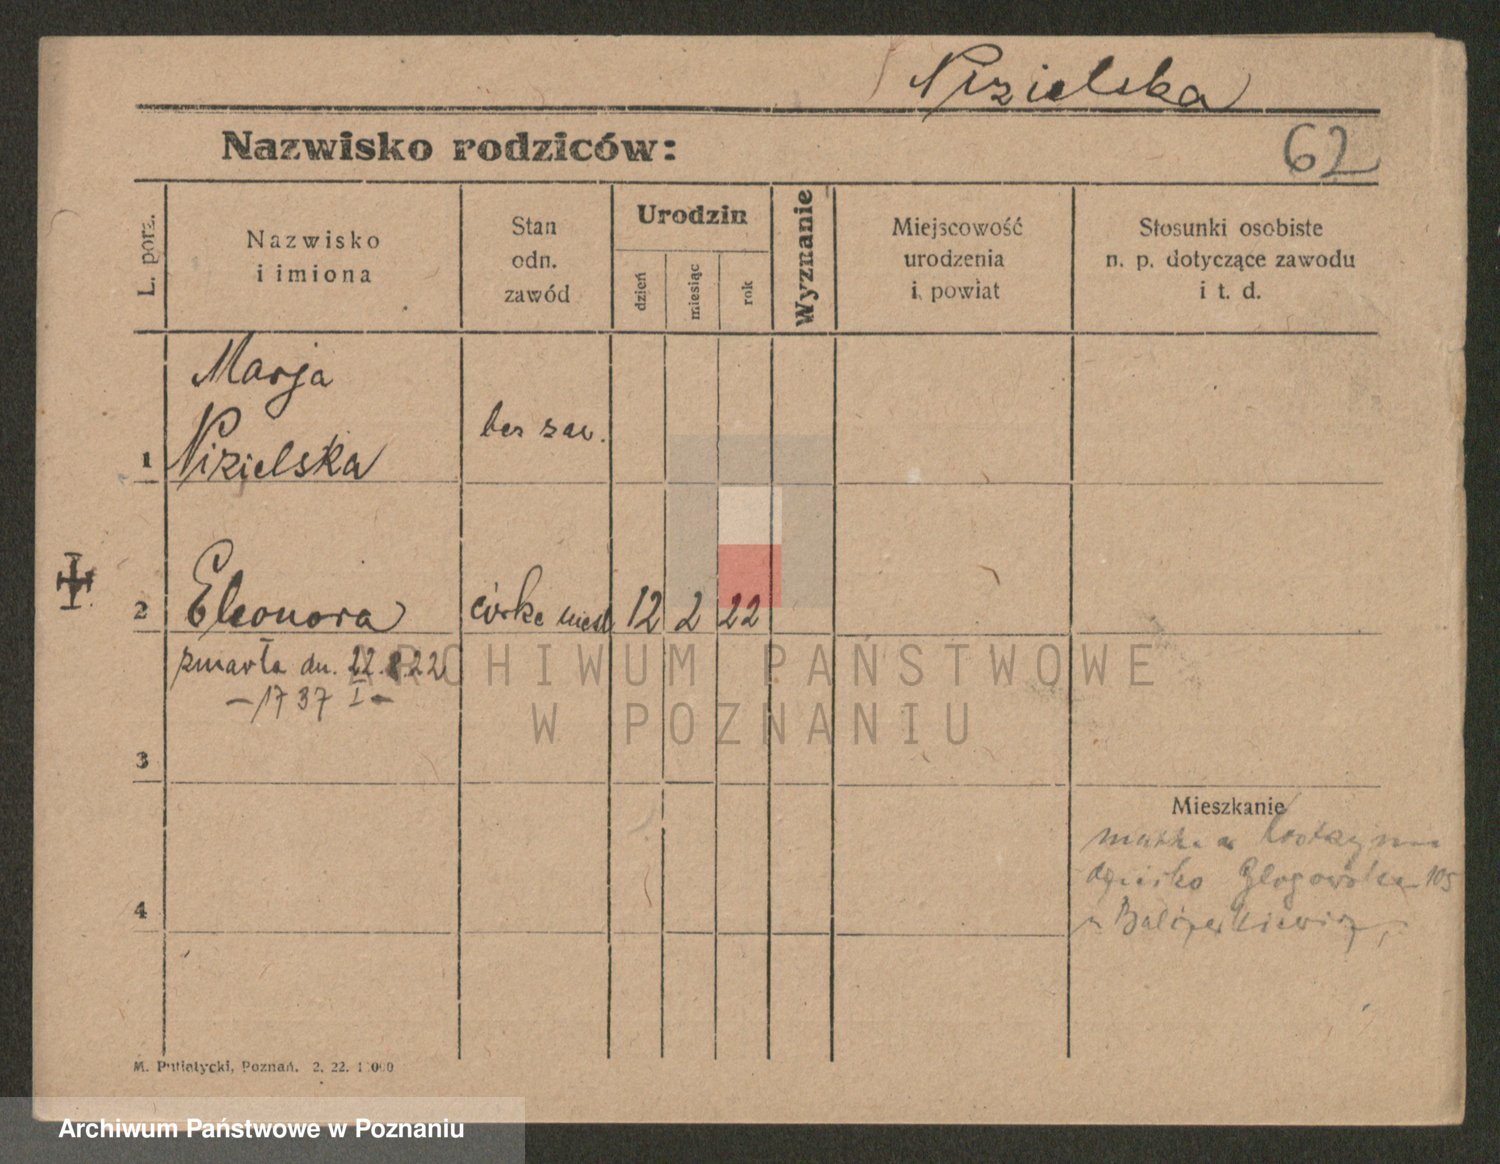 Nizielska
Nazwisko rodziców:
62
L. porz.
Nazwisko
i imiona
Stan
odn.
zawód
Urodzin
dzień
miesiąc
rok
Wyznanie
Miejscowość
urodzenia
i. powiat
Stosunki osobiste
n. p. dotyczące zawodu
i t. d.
Marja
1 Nizielska
bez zaw.
2 Eleonora córka 12 2 22
zmarła dn. 22.8.22
- 1737 I -
ARCHIWUM PAŃSTWOWE
W POZNANIU
3
Mieszkanie
matka
dziecko Głogowska 105
4
M. Putiatycki, Poznań. 2. 22.
Archiwum Państwowe w Poznaniu